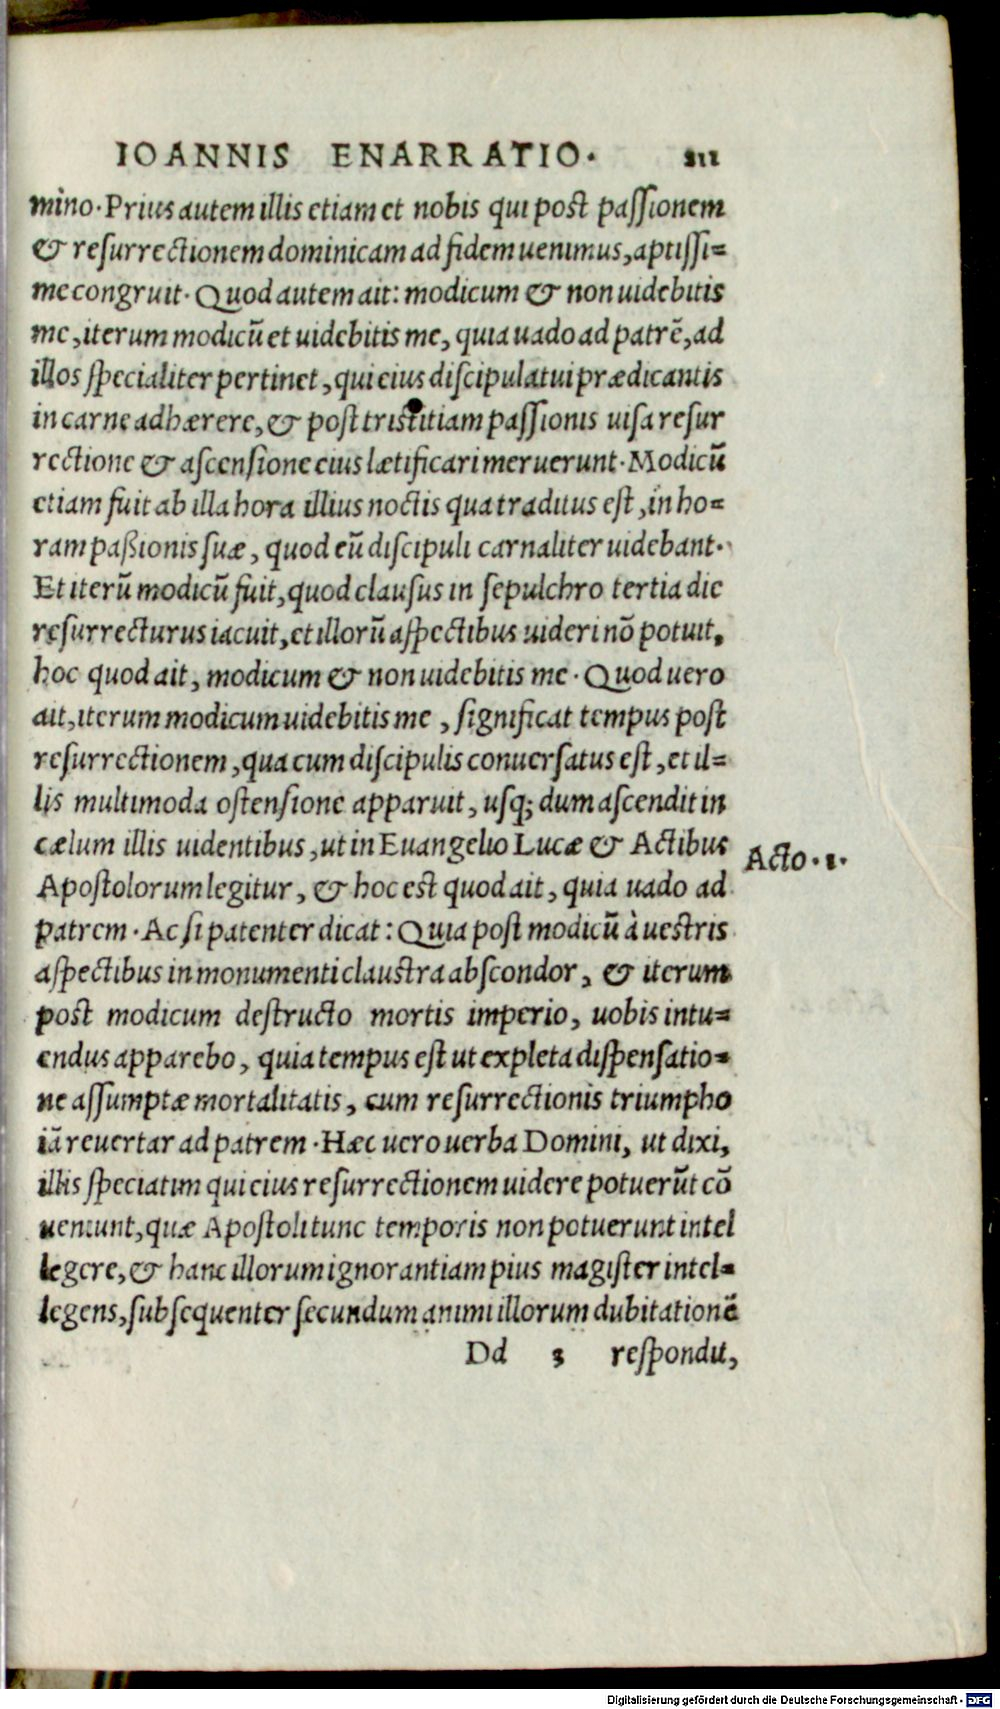 IOANNIS ENARRATIO. 211
mino. Prius autem illis etiam et nobis qui post passionem
& resurrectionem dominicam ad fidem uenimus, aptissi=
me congruit. Quod autem ait: modicum & non uidebitis
me, iterum modicũ et uidebitis me, quia uado ad patrẽ, ad
illos specialiter pertinet, qui eius discipulatui prædicantis
in carne adhærere, & post tristitiam passionis uisa resur
rectione & ascensione eius lætificari meruerunt. Modicũ
etiam fuit ab illa hora illius noctis qua traditus est, in ho=
ram paßionis suæ, quod eũ discipuli carnaliter uidebant.
Et iterũ modicũ fuit, quod clausus in sepulchro tertia die
resurrecturus iacuit, et illorũ aspectibus uideri nõ potuit,
hoc quod ait, modicum & non uidebitis me. Quod uero
ait, iterum modicum uidebitis me, significat tempus post
resurrectionem, qua cum discipulis conuersatus est, et il=
lis multimoda ostensione apparuit, usq; dum ascendit in
cælum illis uidentibus, ut in Euangelio Lucæ & Actibus
Acto. 1.
Apostolorum legitur, & hoc est quod ait, quia uado ad
patrem. Ac si patenter dicat: Quia post modicũ à uestris
aspectibus in monumenti claustra abscondor, & iterum
post modicum destructo mortis imperio, uobis intu=
endus apparebo, quia tempus est ut expleta dispensatio=
ne assumptæ mortalitatis, cum resurrectionis triumpho
iã reuertar ad patrem. Hæc uero uerba Domini, ut dixi,
illis speciatim qui eius resurrectionem uidere potuerũt cõ
ueniunt, quæ Apostoli tunc temporis non potuerunt intel
legere, & hanc illorum ignorantiam pius magister intel=
legens, subsequenter secundum animi illorum dubitationẽ
Dd 3 respondit,
Digitalisierung gefördert durch die Deutsche Forschungsgemeinschaft - DFG